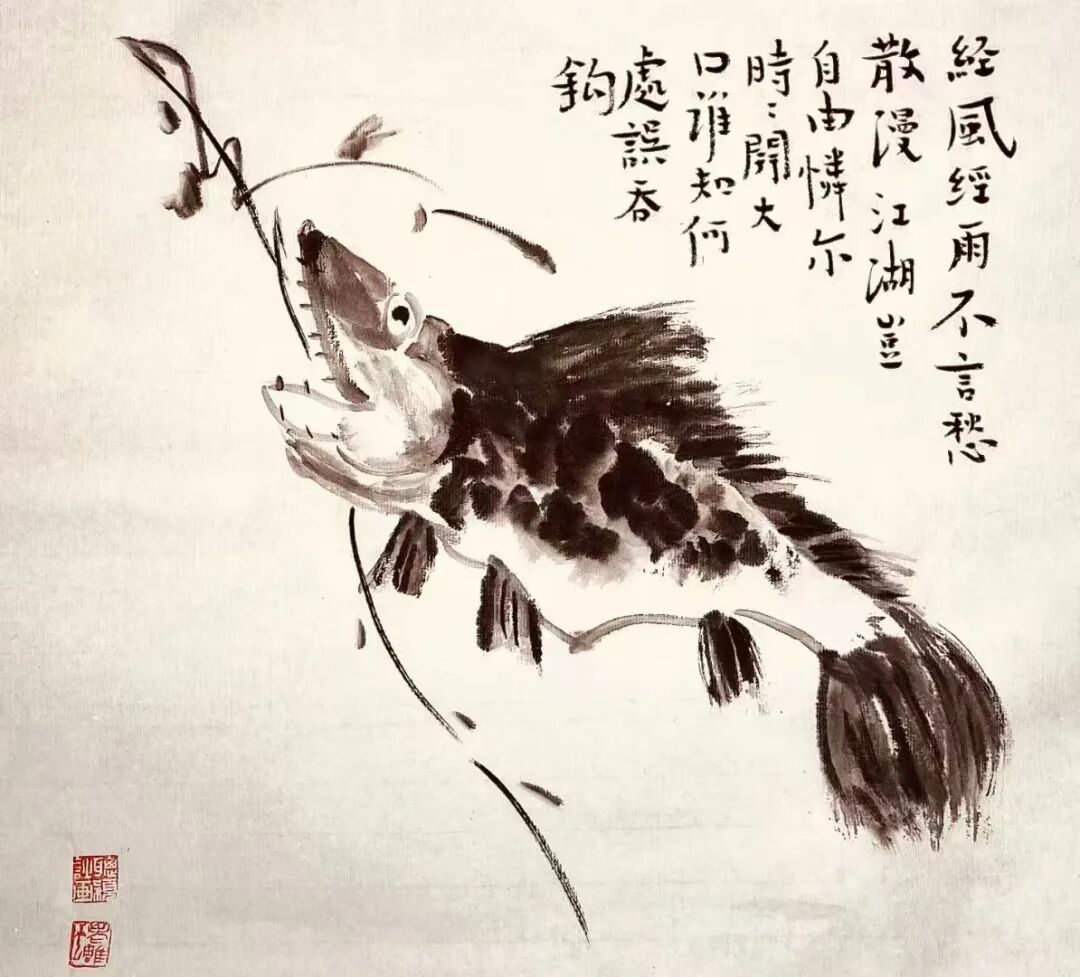 経風經雨不言愁
散漫江湖豈
自由憐尔
時〻開大
口誰知何
處誤吞
鈎